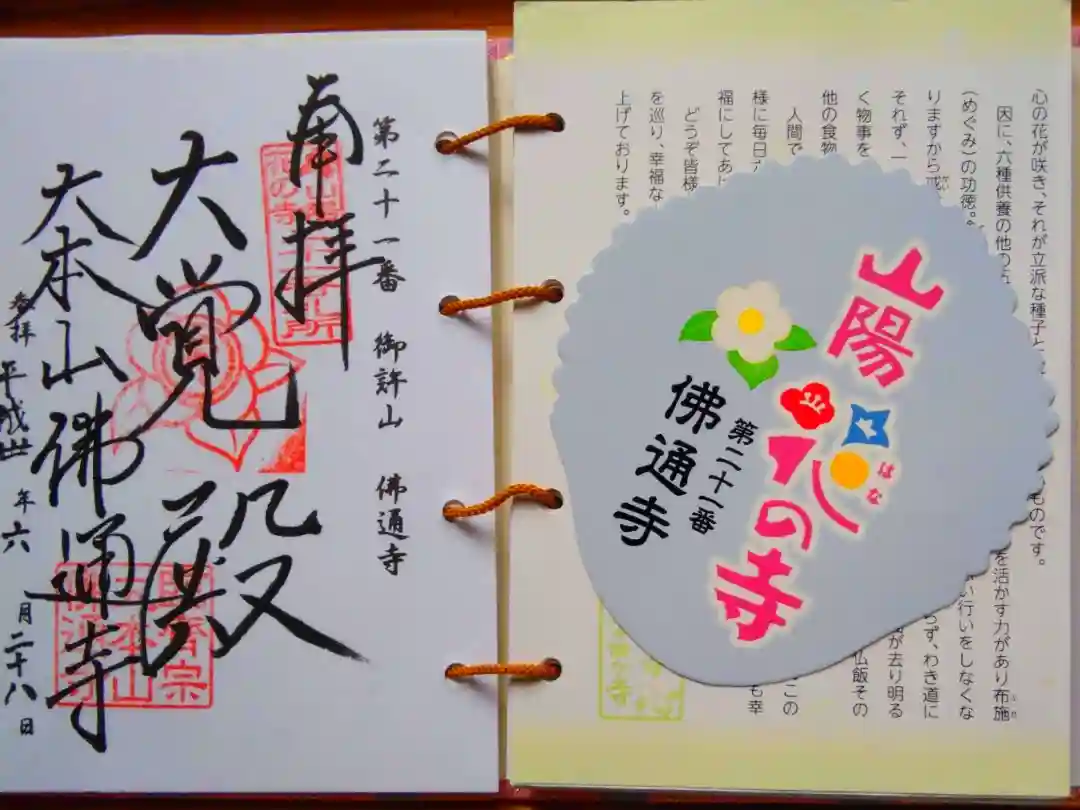 第二十一番 御許山 佛通寺
奉拝
大覚殿
大本山佛通寺
参拝 平成廿 年六 月二十八日
臨済宗
大本山
佛通寺
心の花が咲き、それが立派な種子と
ものです。
因に、六種供養の他の五
を活かす力があり布施
(めぐみ)の功徳。
い行いをしなくな
りますから戒
らず、わき道に
それず、一
が去り明る
く物事を
仏飯その
他の食物
この
人間で
様に毎日
も幸
福にしてあ
どうぞ皆様
を巡り、幸福な
上げております。
山陽
花の寺
はな
第二十一番
佛通寺